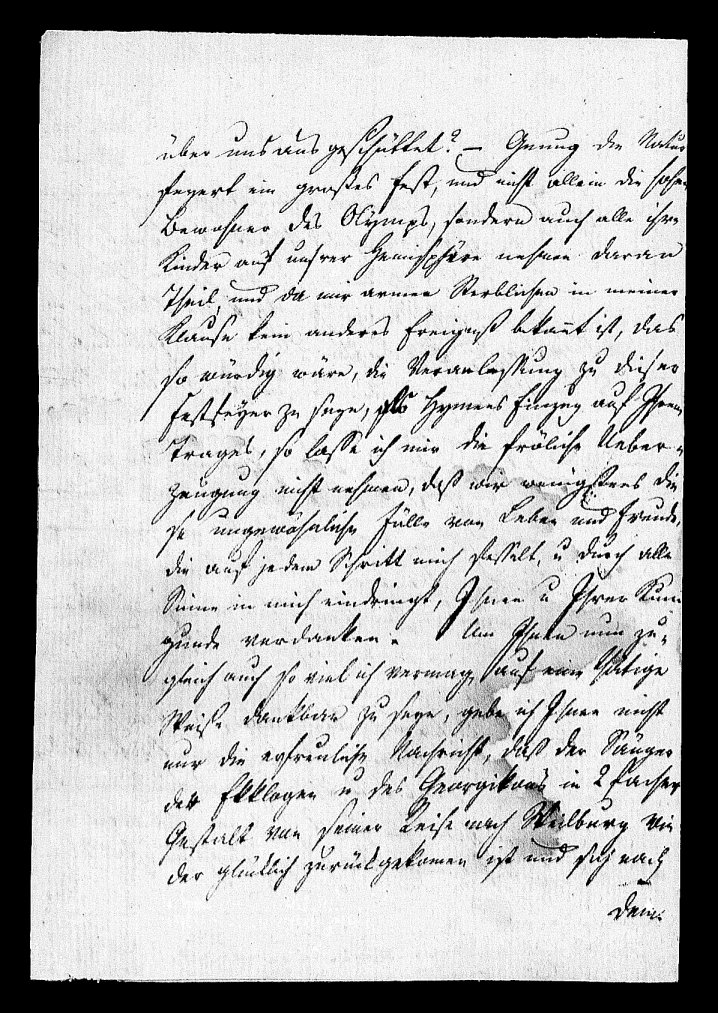 über uns ausgeschüttet? – Genug die Natur
feyert ein großes Fest, und nicht allein die hohen
Bewohner des Olymps, sondern auch alle ihre
Kinder auf unsrer Hemisphäre nehmen daran
Theil, und da mir armen Sterblichen in meiner
Klause kein anderes Ereigniß bekañt ist, das
so würdig wäre, die Veranlassung zu dieser
Festfeyer zu seyn, als Hymens Einzug auf Ihrem
Trages, so lasse ich mir die fröliche Ueber-
zeugung nicht nehmen, daß wir wenigstens die
se ungewöhnliche Fülle von Leben und Freude,
die auf jedem Schritt mich fesselt, u durch alle
Sinne in mich eindringt, Ihnen u Ihrer Kuni
gunde verdanken. Um Ihnen nun zu-
gleich auch so viel ich vermag, auf eine thätige
Weise dankbar zu seyn, gebe ich Ihnen nicht
nur die erfreuliche Nachricht, daß der Sänger
der Ekklogen u des Georgikons in 2facher
Gestalt von seiner Reise nach Weilburg wie
der glücklich zurückgekomen ist und sich nach
dem